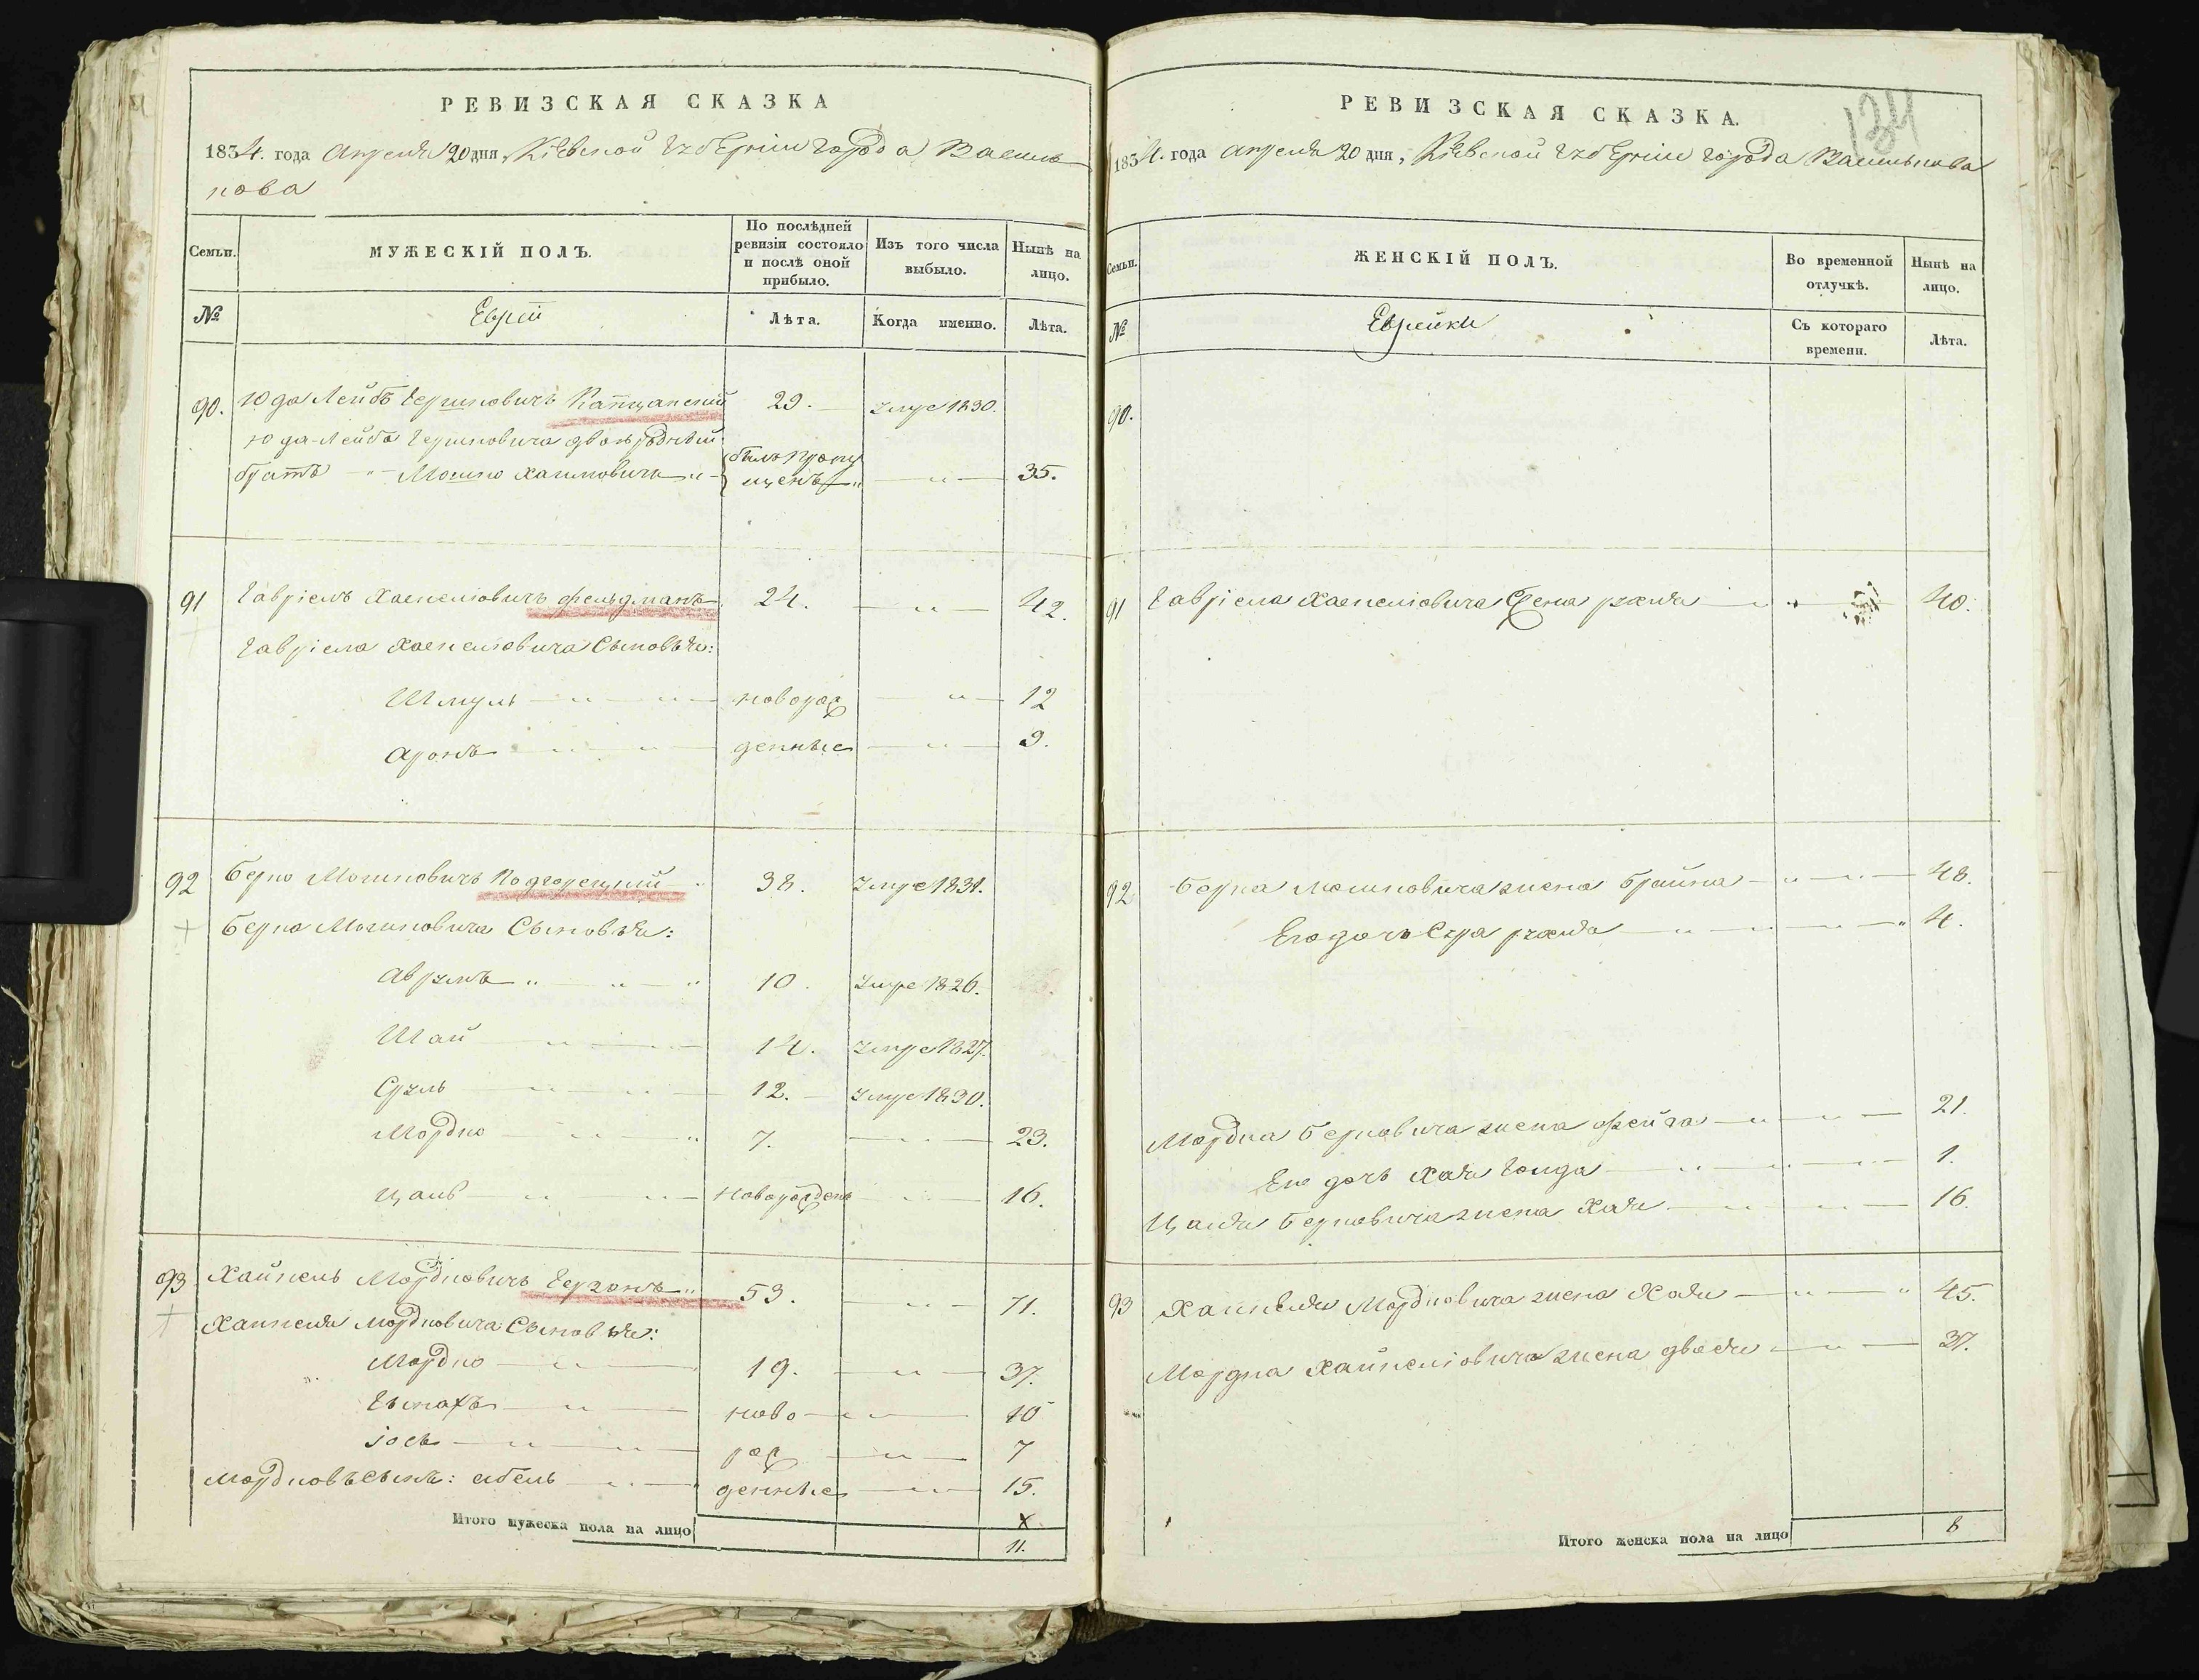 РЕВИЗСКАЯ СКАЗКА
1834. года Апреля 20 дня, Кіевской Губерніи города Василь
кова
Семьи.
МУЖЕСКІЙ ПОЛЪ.
По послѣдней ревизіи состояло и послѣ оной прибыло.
Изъ того числа выбыло.
Нынѣ на лицо.
№
Евреи
Лѣта.
Когда именно.
Лѣта.
90. Юда Лейбъ Гершковичъ 29. умре 1830.
Юда-Лейба Гершковича двоюродный
братъ Мошко Хаимовичъ былъ пропущенъ 35.
91 Гавріель Хаскеліовичъ Фельдманъ 24. 42.
Гавріела Хаскеліовича Сыновья:
Шмуль новорож 12
Аронъ денные 9.
92 Берко Мошковичъ Подгорецкій 38. умре 1831.
Берка Мошковича Сыновья:
Аврумъ 10. умре 1826.
Шай 14. умре 1827.
Сруль 12. умре 1830.
Мордко 7. 23.
Цаль Новорожденъ 16.
93 Хайкель Мордковичъ Герзонъ 53. 71.
Хайкеля Мордковича Сыновья:
Мордко 19. 37.
ново 10
Іось рож 7
Мордковъ сынъ: денные 15.
Итого мужеска пола на лицо
11.
РЕВИЗСКАЯ СКАЗКА.
134
1834. года Апреля 20 дня, Кіевской Губерніи города Василькова
Семьи.
ЖЕНСКІЙ ПОЛЪ.
Во временной отлучкѣ.
Нынѣ на лицо.
№
Еврейки
Съ котораго времени.
Лѣта.
90.
91 Гавріела Хаскеліовича Жена Рухля 40.
92 Берка Мошковича жена Брайна 48.
Его дочь Сура Рухля 4.
Мордка Берковича жена Фейга 21.
Его дочь Хая Голда 1.
Цаля Берковича жена Хая 16.
93 Хайкеля Мордковича жена Хая 45.
Мордка Хайкеліовича жена Двося 37.
Итого женска пола на лицо 8